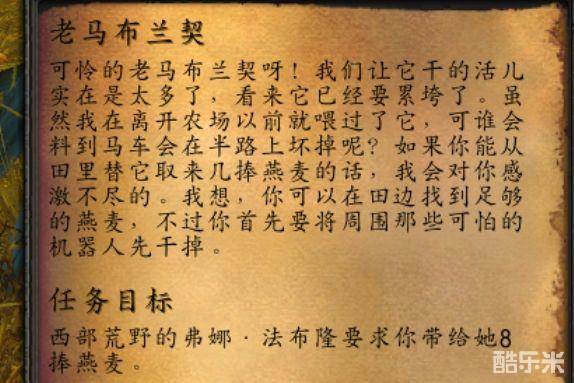 老马布兰契
可怜的老马布兰契呀！我们让它干的活儿
实在是太多了，看来它已经要累垮了。虽
然我在离开农场以前就喂过了它，可谁会
料到马车会在半路上坏掉呢？如果你能从
田里替它取来几捧燕麦的话，我会对你感
激不尽的。我想，你可以在田边找到足够
的燕麦，不过你首先要将周围那些可怕的
机器人先干掉。
任务目标
西部荒野的弗娜·法布隆要求你带给她8
捧燕麦。
酷乐米